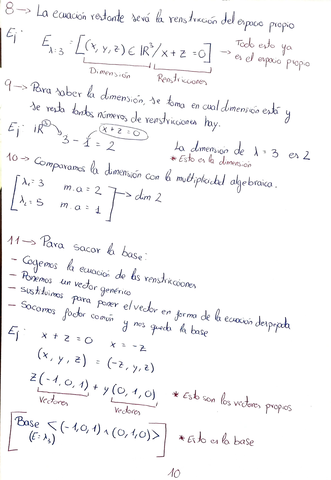 8 → La ecuación restante será la renstricción del espacio propio
Ej: E λ=3 = [(x, y, z) ∈ IR³ / x + z = 0] → Todo esto ya es el espacio propio
Dimensión Restricciones
9 → Para saber la dimensión, se toma en cual dimensión está y
se resta tantos números de renstricciones hay.
Ej: IR³ x + z = 0
3 - 1 = 2 La dimensión de λ = 3 es 2
* Esto es la dimensión
10 → Comparamos la dimensión con la multiplicidad algebraica.
λ₁ = 3 m.a = 2 → dim 2
λ₂ = 5 m.a = 1
11 → Para sacar la base:
- Cogemos la ecuación de las renstricciones
- Ponemos un vector genérico
- Sustituimos para poner el vector en forma de la ecuación despejada
- Sacamos factor común y nos queda la base
Ej: x + z = 0 x = -z
(x, y, z) = (-z, y, z)
z(-1, 0, 1) + y(0, 1, 0) * Esto son los vectores propios
Vectores Vectores
Base <(-1,0,1),(0,1,0)> * Esto es la base
10